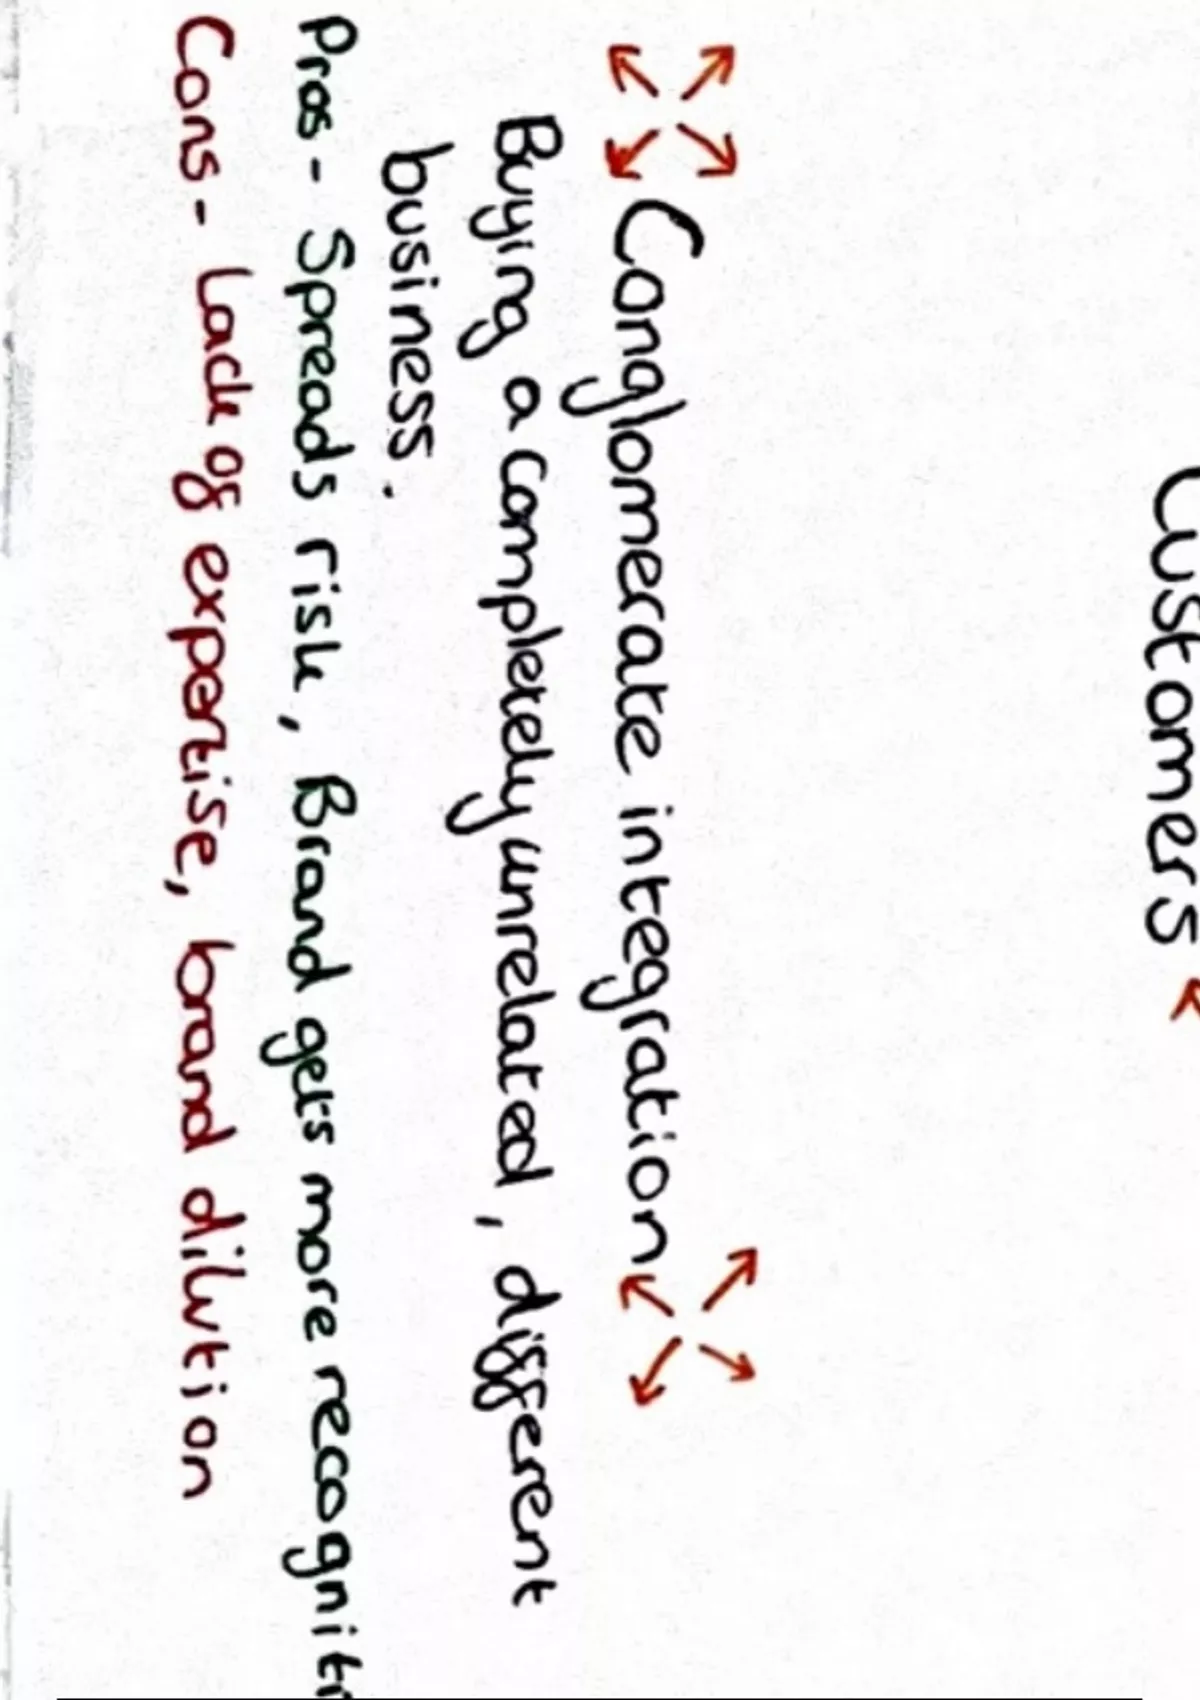 Customers
Conglomerate integration
Buying a completely unrelated, different
business.
Pros - Spreads risk, Brand gets more recogniti
Cons - Lack of expertise, brand dilution